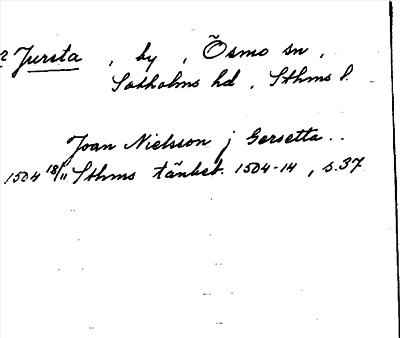 ? Jursta , by , Ösmo sn ,
Sotholms hd , Sthms l.
Joan Nielsson j Gersetta . .
1504 18/11 Sthms tänkeb. 1504-14 , s. 37